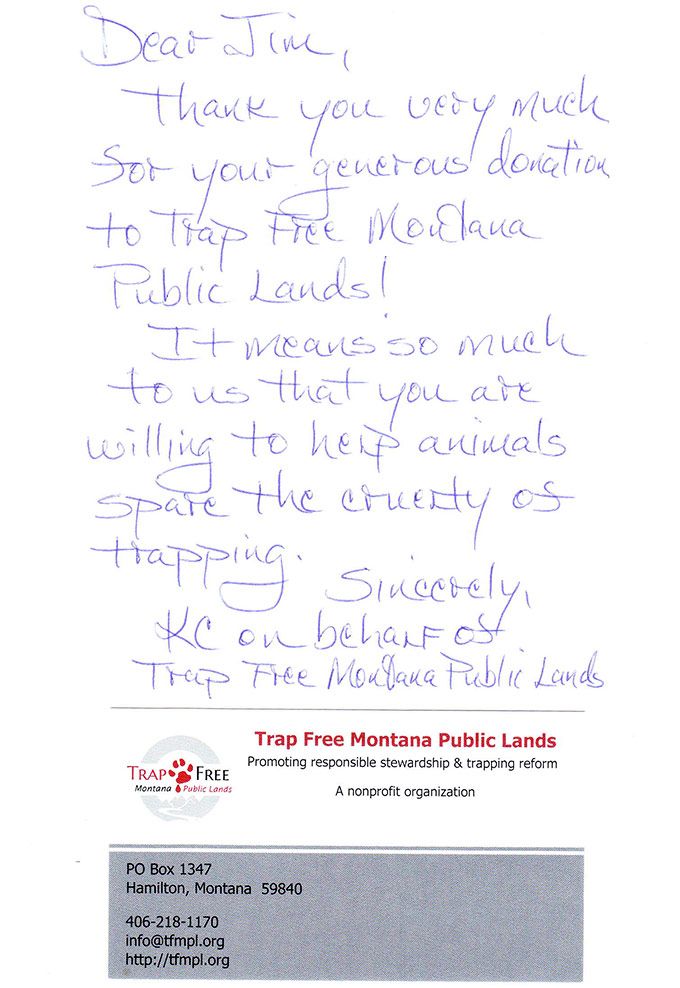 Dear Jim,
Thank you very much
for your generous donation
to Trap Free Montana
Public Lands!
It means so much
to us that you are
willing to help animals
spare the cruelty of
trapping.
Sincerely,
KC on behalf of
Trap Free Montana Public Lands
Trap Free Montana Public Lands
Promoting responsible stewardship & trapping reform
A nonprofit organization
TRAP FREE
Montana Public Lands
PO Box 1347
Hamilton, Montana 59840
406-218-1170
info@tfmpl.org
http://tfmpl.org